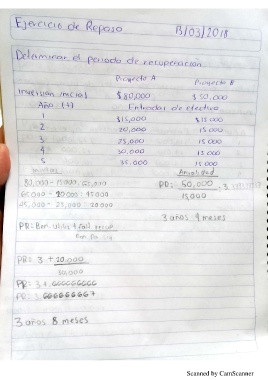 Ejercicio de Repaso 13/03/2018
Determinar el periodo de recuperación
Proyecto A Proyecto B
Inversión inicial $80,000 $50,000
Año (t) Entradas de efectivo
1 $15,000 $15 000
2 20,000 15 000
3 25,000 15 000
4 30,000 15 000
5 35,000 15 000
Anualidad
80,000 - 15000 = 65,000
65000 - 20000 = 45000
45,000 - 25,000 = 20000
PR= 50,000 = 3
15,000
3 años 4 meses
PR= 3 + 20,000
30,000
PR= 3 + .666666666
PR= 3.666666667
3 años 8 meses
Scanned by CamScanner